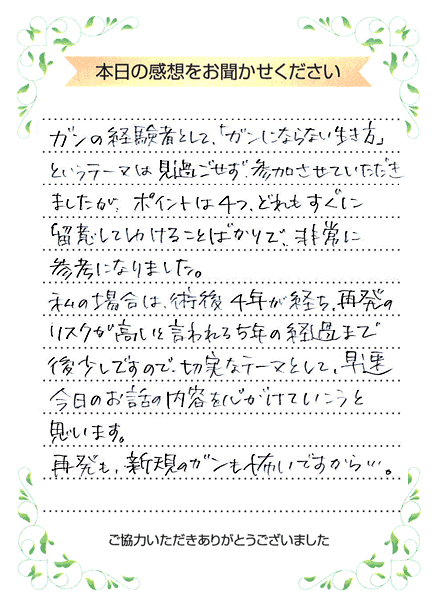 本日の感想をお聞かせください
ガンの経験者として、「ガンにならない生き方」
というテーマは見過ごせず、参加させていただき
ましたが、ポイントは4つ、どれもすぐに
留意してゆけることばかりで、非常に
参考になりました。
私の場合は、術後4年が経ち、再発の
リスクが高いと言われる5年の経過まで
後少しですので、切実なテーマとして、早速
今日のお話の内容を心がけていこうと
思います。
再発も、新規のガンも怖いですから…。
ご協力いただきありがとうございました